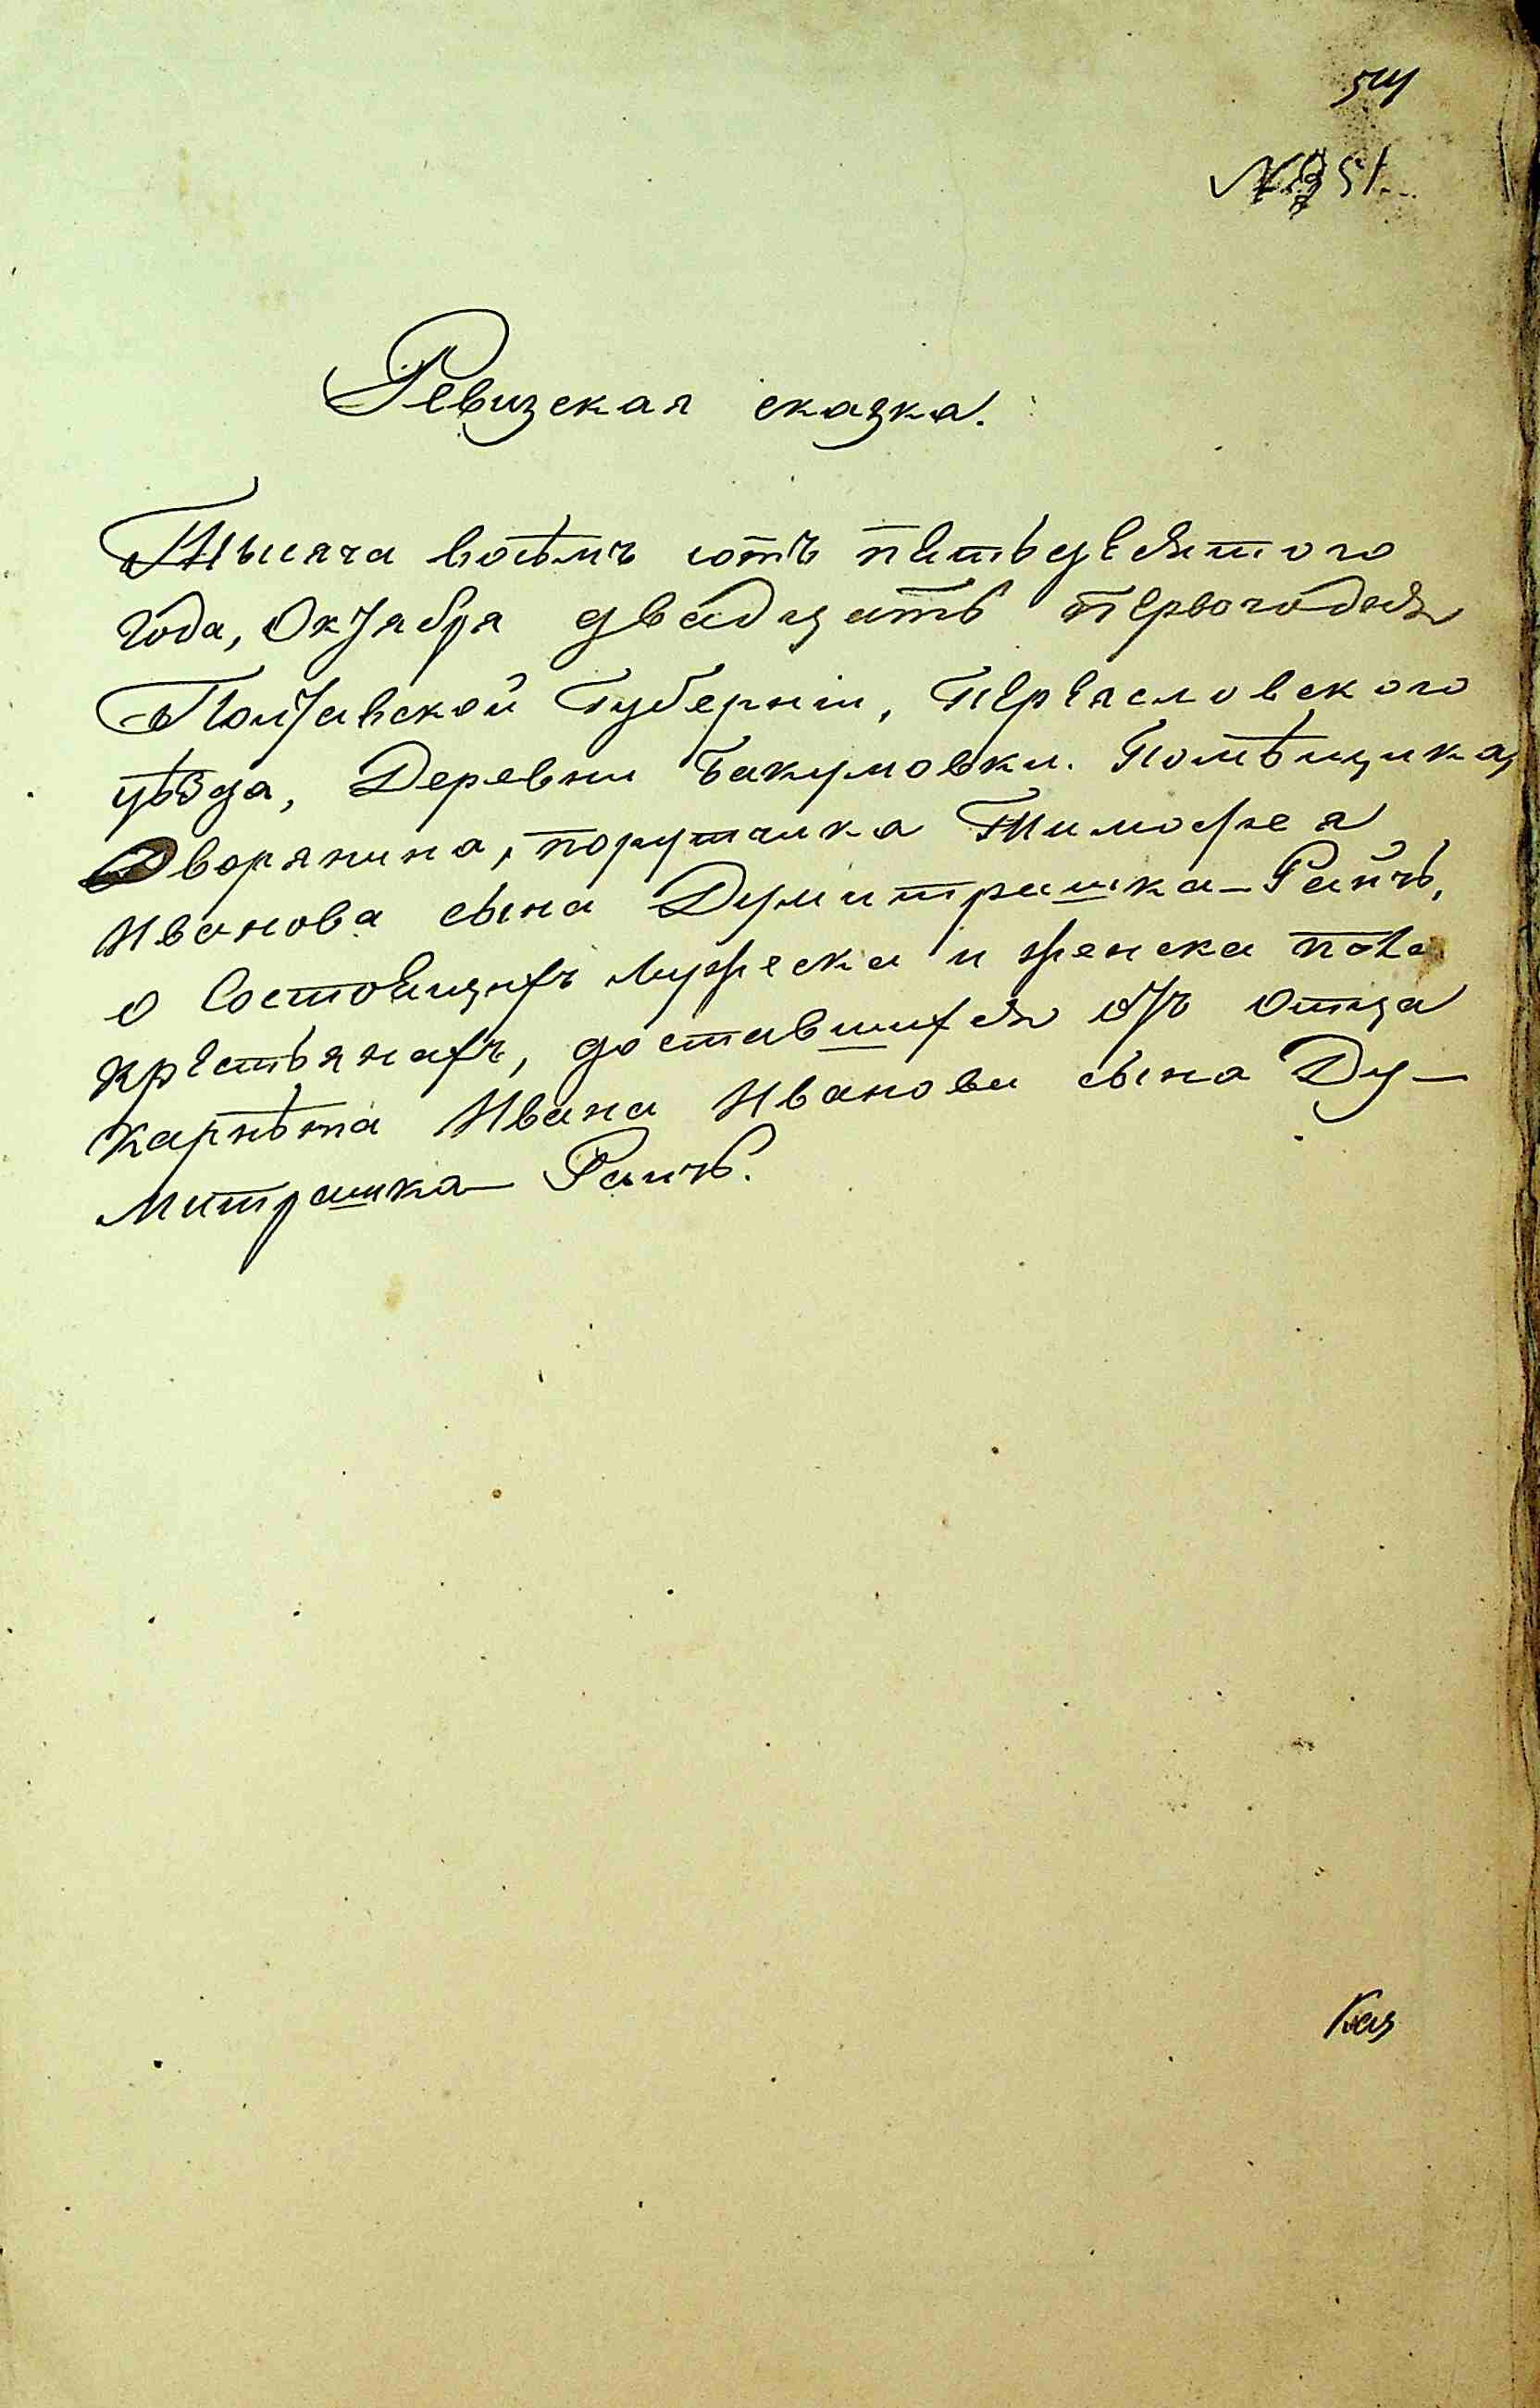 514
№ 51.
Ревизская сказка.
Тысяча восѣмъ сотъ пятьдесятого
года, Октября двадцать первогодня
Полтавской Губерніи, Переясловского
уѣзда, Деревни Бакумовки. Помѣщика,
Дворянина, порутчика Тимофея
Иванова сына Думитрашка-Райчъ,
о Состоящихъ мужеска и женска пола
крестьянахъ, доставшихся отъ отца
Карнѣта Ивана Иванова сына Ду-
митрашка-Раичъ.